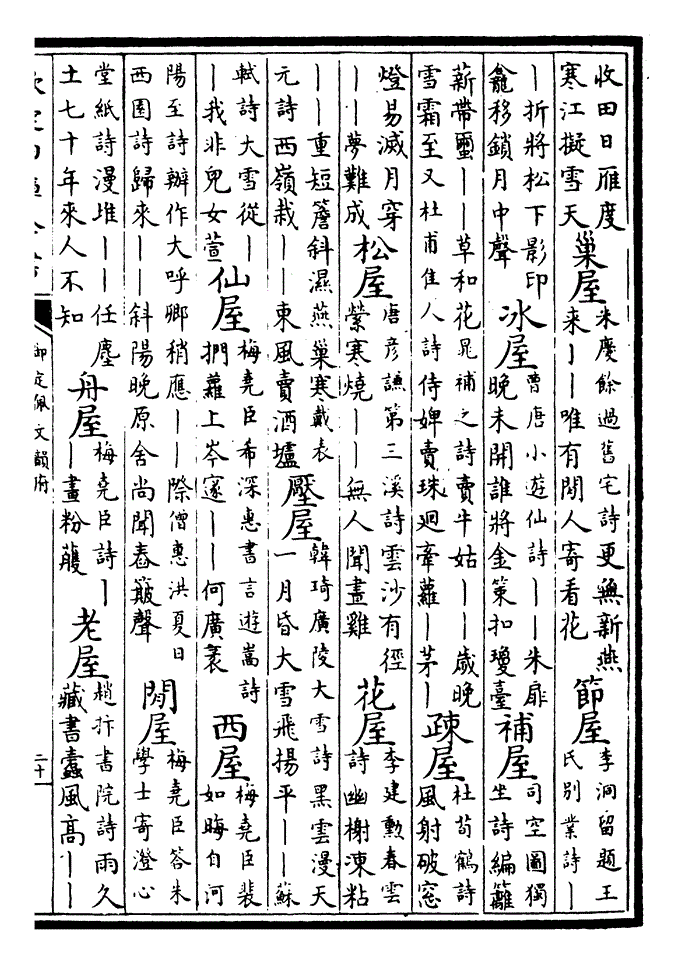 收田日雁度寒江擬雪天巢屋朱慶餘過舊宅詩更無新燕來――唯有閒人寄看花節屋李洞留題王氏別業詩―
―折將松下影印龕移鎖月中聲氷屋曹唐小遊仙詩――朱扉晚未開誰將金策扣瓊臺補屋司空圖獨坐詩編籬
薪帶蠒――草和花晁補之詩賣牛姑――歲晚雪霜至又杜甫佳人詩侍婢賣珠迴牽蘿―茅―疎屋杜荀鶴詩風射破窓
燈易滅月穿――夢難成松屋唐彦謙第三溪詩雲沙有徑縈寒燒――無人聞晝雞花屋李建勲春雲詩幽榭凍粘
――重短簷斜濕燕巢寒戴表元詩西嶺栽――東風賣酒壚壓屋韓琦廣陵大雪詩黑雲漫天一月昏大雪飛揚平――蘇
軾詩大雪從――我非兒女萱仙屋梅堯臣希深惠書言遊嵩詩捫蘿上岑邃――何廣袤西屋梅堯臣裴如晦自河
陽至詩辦作大呼卿稍應――際僧惠洪夏日西園詩歸來――斜陽晚原舍尚聞舂簸聲閒屋梅堯臣答朱學士寄澄心
堂紙詩漫堆――任塵土七十年來人不知舟屋梅堯臣詩――畫粉雘老屋趙抃書院詩雨久藏書蠹風高――
欽定四庫全書
御定佩文韻府